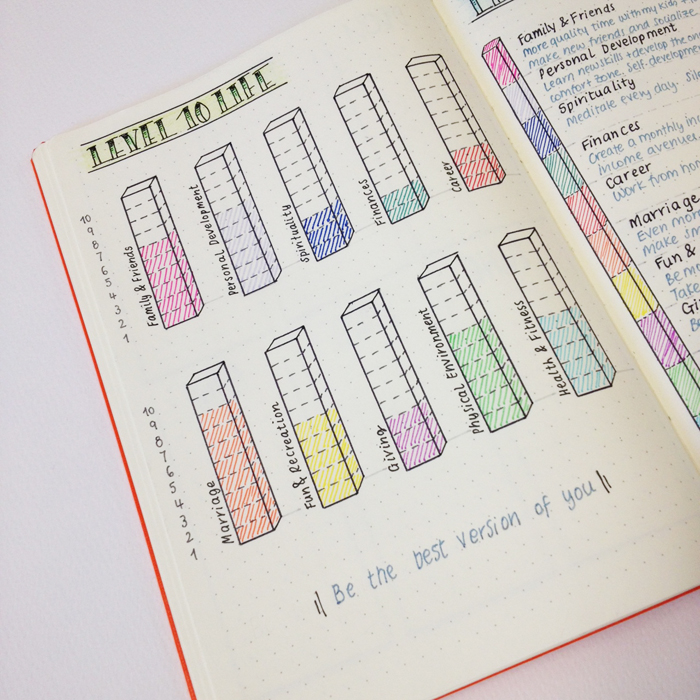 LEVEL 10 LIFE
10
9
8
7
6
5
4
3
2
1
Family & Friends
Personal Development
Spirituality
Finances
Career
10
9
8
7
6
5
4
3
2
1
Marriage
Fun & Recreation
Giving
Physical Environment
Health & Fitness
Be the best version of you
Family & Friends
more quality time with my kids +
make new friends and socialize
Personal Development
Learn new skills + develop the
comfort zone. Self-develop
Spirituality
Meditate every day.
Finances
Create a monthly
income avenues
Career
Work from
Marriage
Even more
make
Fun &
Be
Take